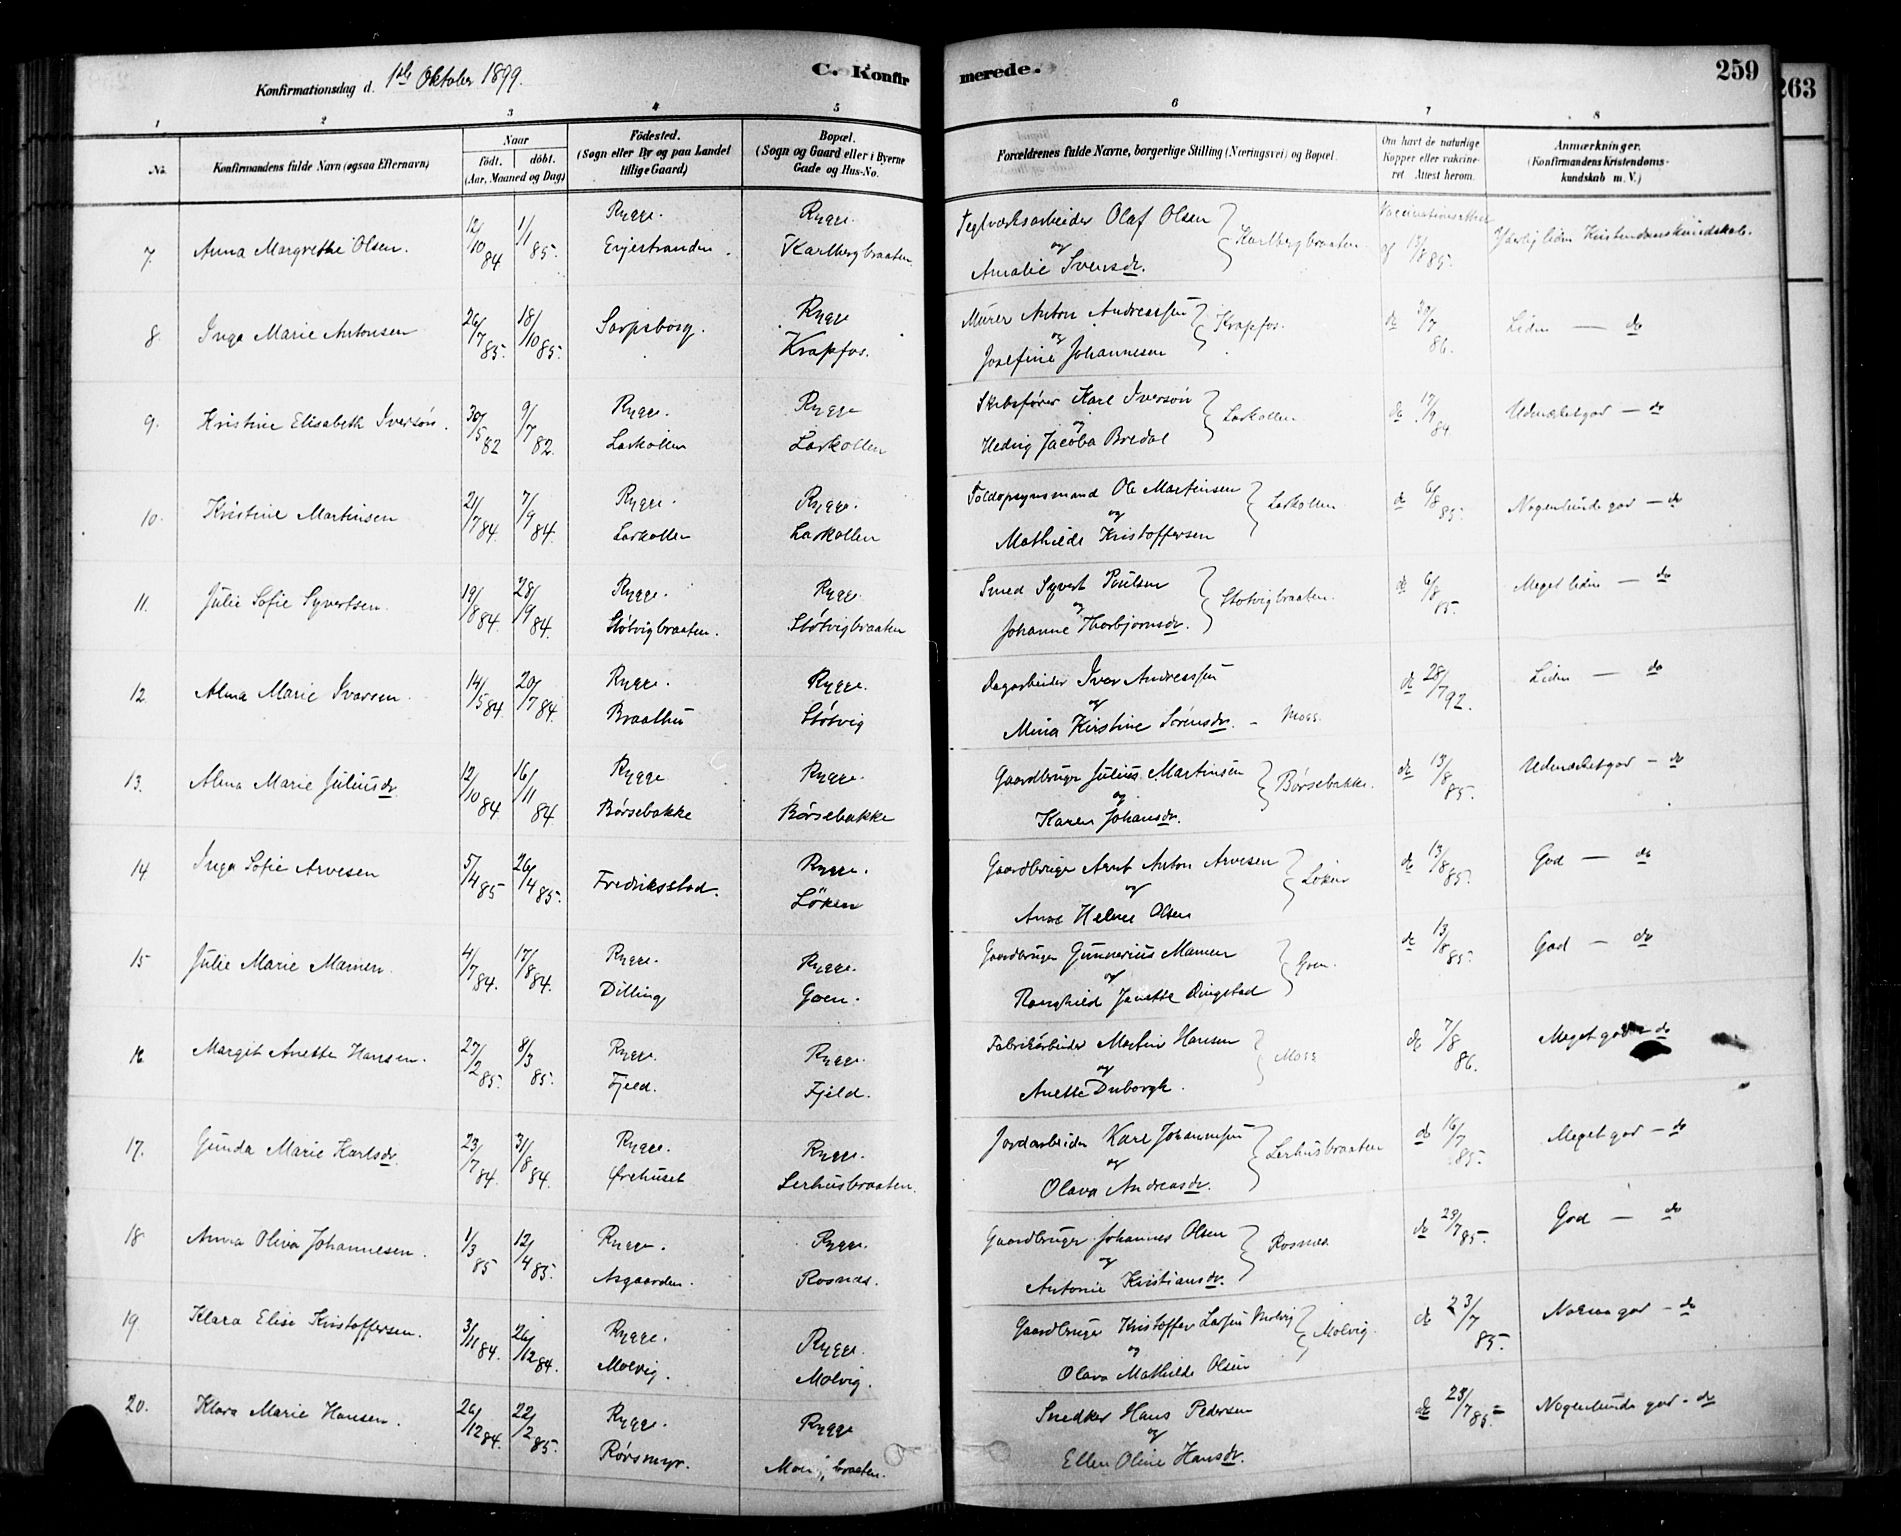 Konfirmationsdag d. 1ste Oktober 1899.
C. Konfirmerede.
259
263
1 2 3 4 5 6 7 8
No.
Konfirmandens fulde Navn (ogsaa Efternavn)
Naar
födt. döbt.
(Aar, Maaned og Dag)
Födested.
(Sogn eller By og paa Landet
tillige Gaard)
Bopæl.
(Sogn og Gaard eller i Byerne
Gade og Hus-No.
Forældrenes fulde Navne, borgerlige Stilling (Næringsvei) og Bopæl.
Om havt de naturlige
Kopper eller vakcine-
ret Attest herom.
Anmærkninger.
(Konfirmandens Kristendoms-
kundskab m. V.)
7. Anna Margrethe Olsen. 12/10 84 1/1 85. Rygge. Rygge. Karlbergbraaten.
Teglværksarbeider Olaf Olsen og Amalie Svensdr. Karlbergbraaten. Vaccinations Attest af 13/8 85. Kristendomskundskab.
8. Inga Marie Antonsen 26/7 85. 18/10 85. Sarpsborg. Rygge Krapfos.
Murer Anton Andreassen og Josefine Johannesen Krapfos. do 30/7 86. Liden — do
9. Kristine Elisabeth Iversøn. 30/5 82 9/7 82. Rygge. Larkollen Rygge Larkollen
Skibsfører Karl Iversøn og Hedvig Jacoba Bredal Larkollen do 17/9 84. Udmærketgod — do
10. Kristine Martinsen 21/7 84. 7/9 84. Rygge. Larkollen Rygge. Larkollen
Toldopsynsmand Ole Martinsen og Mathilde Kristoffersen Larkollen. do 6/8 85. Nogenlunde god — do
11. Julie Sofie Syvertsen. 19/8 84. 28/9 84. Rygge. Støtvigbraaten. Rygge. Støtvigbraaten
Smed Syvert Poulsen og Johanne Thorbjørnsdr. Støtvigbraaten. do 6/8 85. Meget liden — do
12. Alma Marie Ivarsen. 14/5 84. 20/7 84. Rygge. Braathen Rygge. Støtvig
Dagarbeider Iver Andreassen og Mina Kirstine Sørensdr. - Moss. do 28/7 92. Liden — do
13. Alma Marie Juliusdr. 12/10 84. 16/11 84. Rygge Børsebakke Rygge. Børsebakke
Gaardbruger Julius Martinsen og Karen Johansdr. Børsebakke. do 13/8 85. Udmærketgod — do
14 Inga Sofie Arvesen 5/4 85 26/4 85. Fredriksstad. Rygge. Løken
Gaardbruger Arnt Anton Arvesen og Anne Helene Olsen Løken do 13/8 85. God — do
15 Julie Marie Mamen. 4/7 84. 17/8 84. Rygge. Dilling Rygge. Goen.
Gaardbruger Gunnerius Mamen og Ranghild Janette Ringstad Goen. do 13/8 85. God — do
16 Margit Anette Hansen. 27/2 85. 8/3 85. Rygge. Fjeld. Rygge. Fjeld.
Fabrikarbeider Martin Hansen og Anette Duborgh. Moss do 7/8 86. Meget god — do
17. Gunda Marie Karlsdr. 23/7 84. 31/8 84. Rygge. Ørehuset Rygge. Lerhusbraaten.
Jordarbeider Karl Johannesen og Olava Andreasdr. Lerhusbraaten do 16/7 85. Meget god — do
18 Anna Oliva Johannesen. 1/3 85 12/4 85. Rygge. Asgaarden. Rygge. Rosnæs.
Gaardbruger Johannes Olsen og Antonie Kristiansdr. Rosnæs do 23/7 85. God — do
19 Klara Elise Kristoffersen. 3/11 84. 26/12 84. Rygge. Molvig. Rygge. Molvig.
Gaardbruger Kristoffer Larsen Molvig og Olava Mathilde Olsen Molvig. do 23/7 85. god — do
20. Klara Marie Hansen. 26/12 84. 22/2 85. Rygge. Rørsmyr. Rygge braaten.
Snedker Hans Pedersen og Ellen Oline Hansdr. do 23/7 85. Nogenlunde god - do